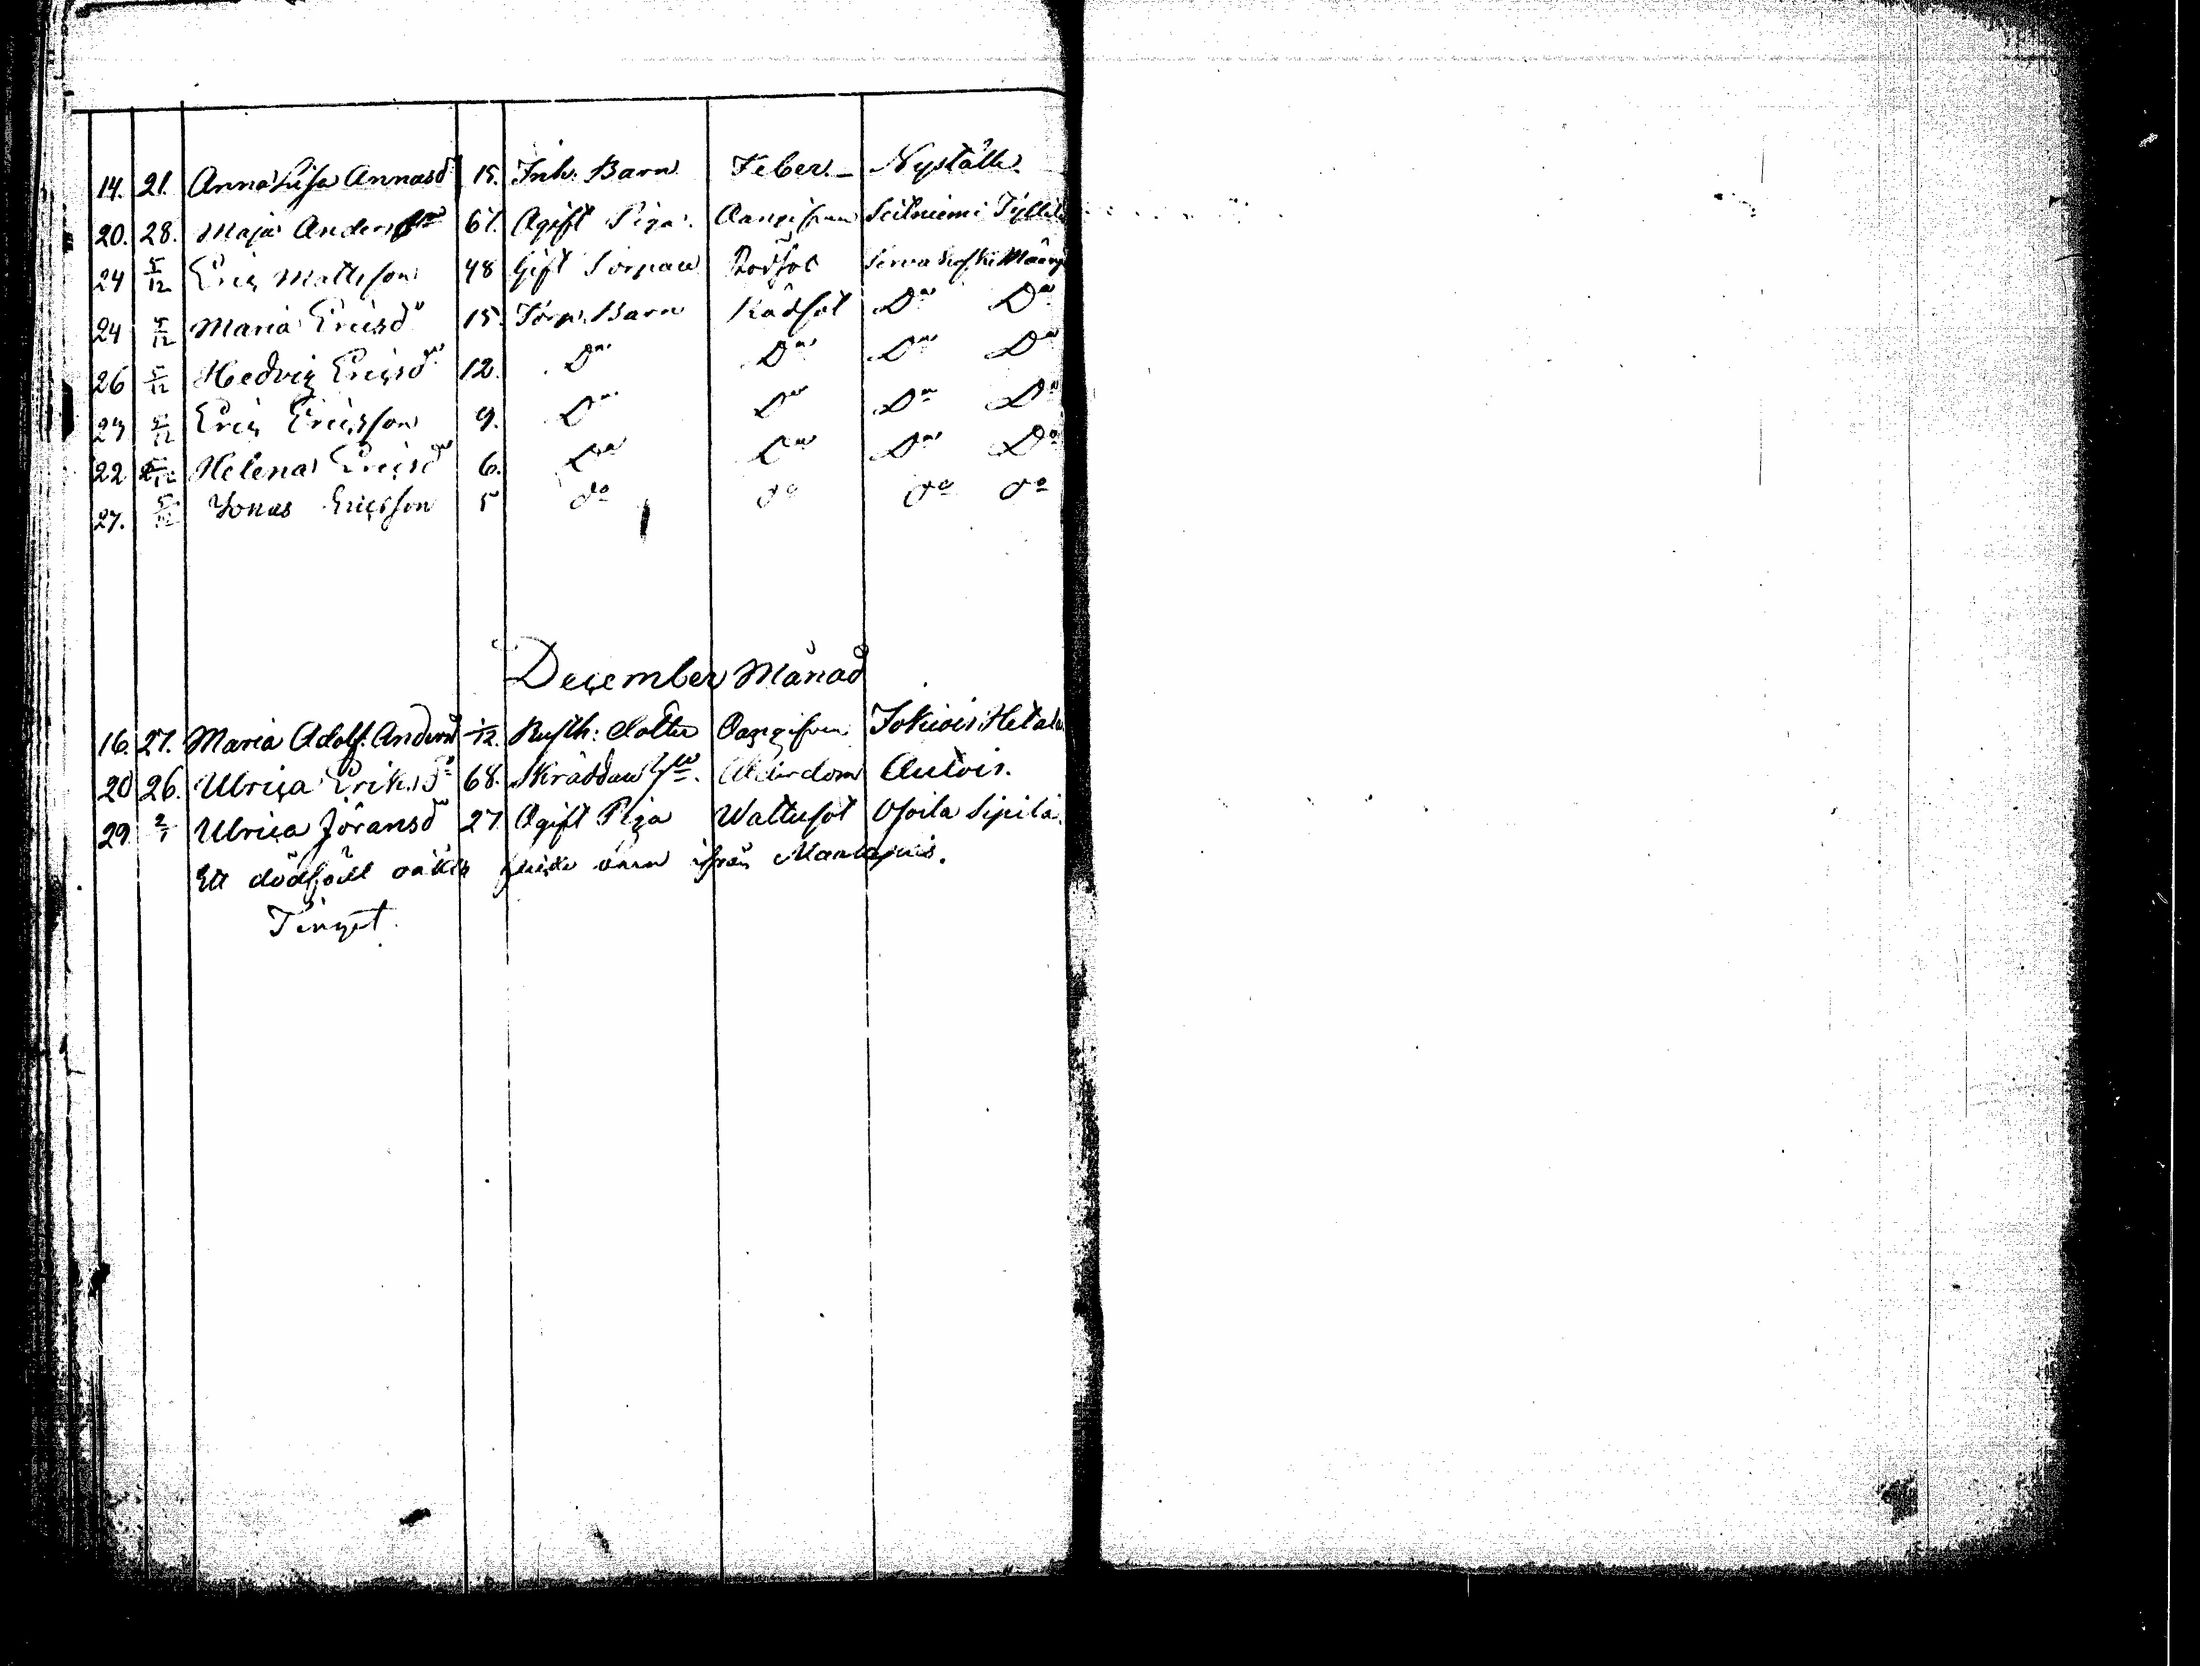 14. 21. Anna Lisa Annasdr 15. Inh. Barn Feber. Nyställe
20. 28. Maja Andersdr 61. Ogift Piga. Oangifven Seiluiemi
24 5/12 Eric Mattsson 48 Gift Torpare Rödsot
24 5/12 Maria Ericsdr 15. Torp. Barn Rödsot Do Do
26 5/12 Hedvig Ericsdr 12. Do Do Do Do
27 5/12 Eric Ericsson 9. Do Do Do Do
22 5/12 Helena Ericsdr 6. Do Do Do Do
27. 5/12 Jonas Ericsson 5 do do do do
December Månad
16. 27. Maria Adolf. Andersdr 1/12. Rusth: dotter Oangifven Jokiois
20 26. Ulrica Eriksdr 68. Skräddare Ålderdom Autois.
29. 2/1 Ulrica Jöransdr 27. Ogift Piga Wattusot Ojoila Sipilä.
Ett dödfödt barn ifrån
Tinget.